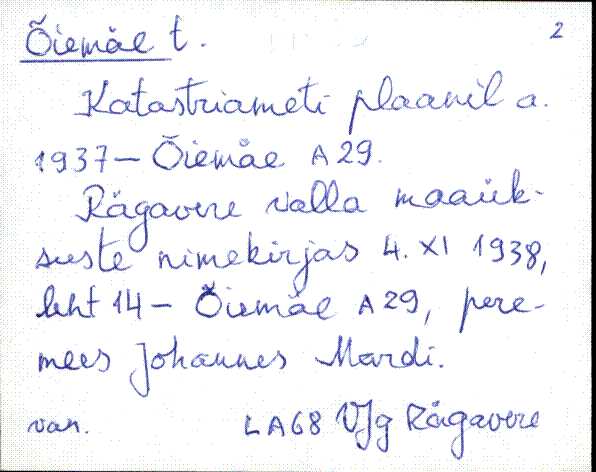 Õiemäe t. 2
Katastriameti plaanil a.
1937 – Õiemäe A 29.
Rägavere valla maaük-
suste nimekirjas 4. XI 1938,
leht 14 – Õiemäe A 29, pere-
mees Johannes Mardi.
van. LA68 VJg Rägavere